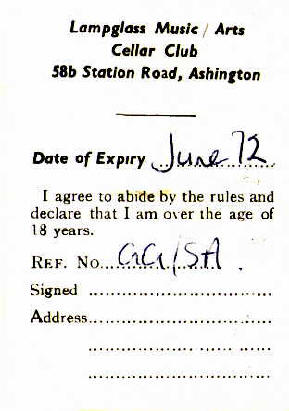 Lampglass Music / Arts
Cellar Club
58b Station Road, Ashington
Date of Expiry June 72
I agree to abide by the rules and
declare that I am over the age of
18 years.
REF. No. GG/SA
Signed
Address